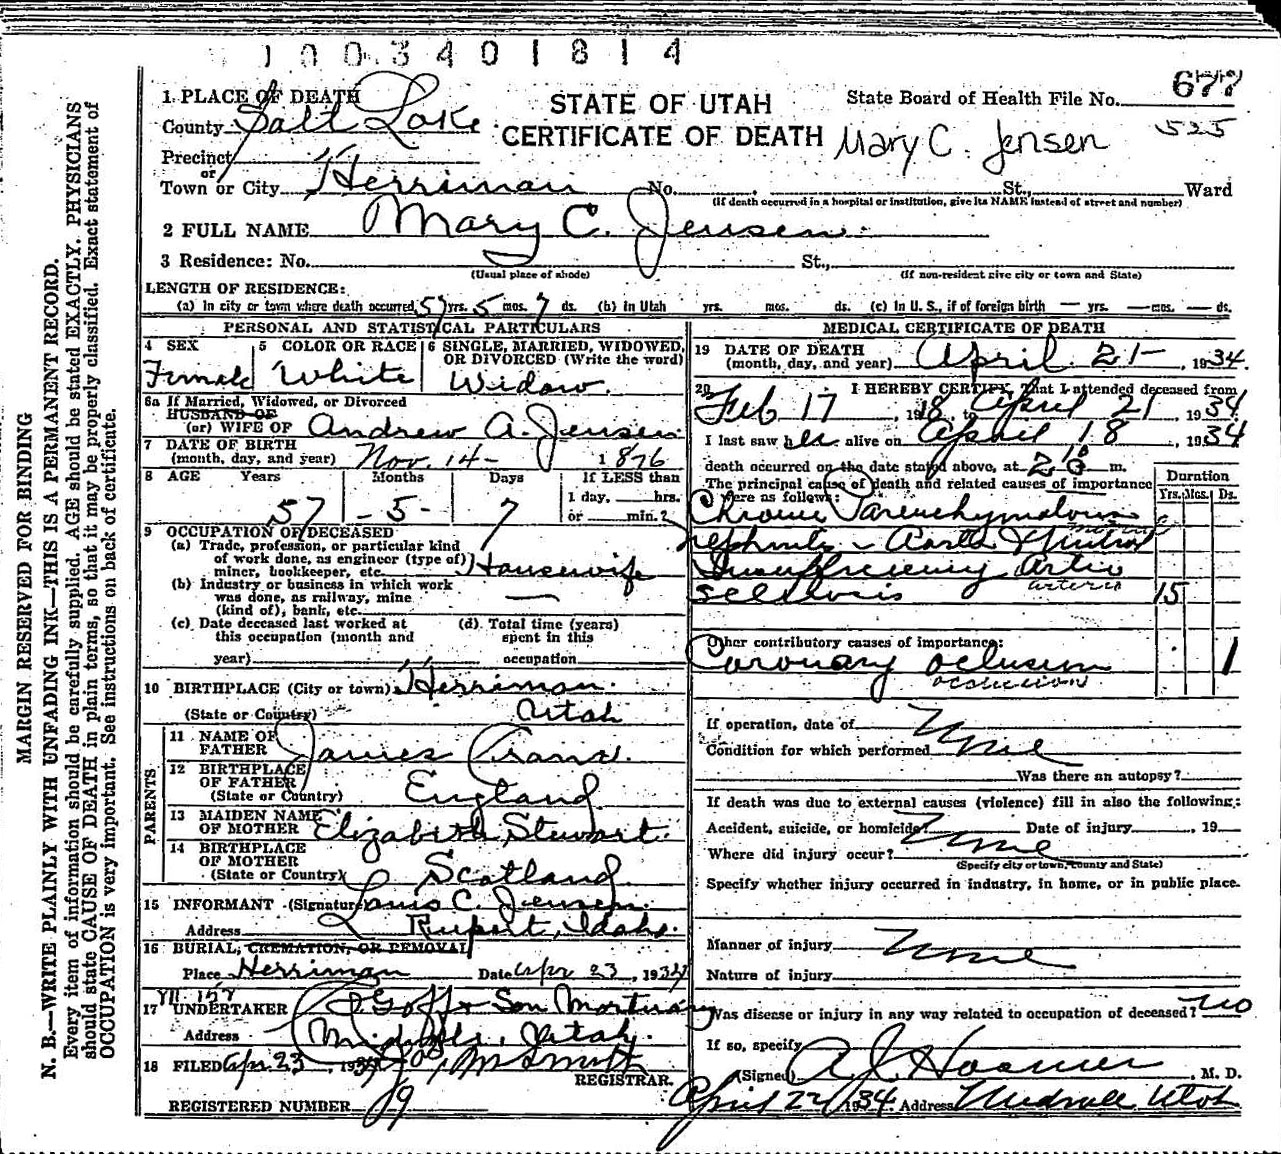 1003401814
1 PLACE OF DEATH
County Salt Lake
STATE OF UTAH
CERTIFICATE OF DEATH
State Board of Health File No. 677
525
Mary C. Jensen
Precinct
or
Town or City Herriman No. St., Ward
(If death occurred in a hospital or institution, give its NAME instead of street and number)
2 FULL NAME Mary C. Jensen
3 Residence: No. St.,
(Usual place of abode) (If non-resident give city or town and State)
LENGTH OF RESIDENCE:
(a) In city or town where death occurred 57 yrs. 5 mos. 7 ds. (b) in Utah yrs. mos. ds. (c) In U. S., if of foreign birth — yrs. — mos. — ds.
PERSONAL AND STATISTICAL PARTICULARS
4 SEX Female
5 COLOR OR RACE White
6 SINGLE, MARRIED, WIDOWED, OR DIVORCED (Write the word) Widow.
6a If Married, Widowed, or Divorced
HUSBAND OF
(or) WIFE OF Andrew A. Jensen
7 DATE OF BIRTH
(month, day, and year) Nov. 14 - 1876
8 AGE Years Months Days If LESS than
1 day, hrs.
or min.?
57 - 5 - 7
9 OCCUPATION OF DECEASED
(a) Trade, profession, or particular kind
of work done, as engineer (type of)
miner, bookkeeper, etc. Housewife
(b) Industry or business in which work
was done, as railway, mine
(kind of), bank, etc. —
(c) Date deceased last worked at
this occupation (month and
year)
(d) Total time (years)
spent in this
occupation
10 BIRTHPLACE (City or town) Herriman.
(State or Country) Utah
PARENTS
11 NAME OF
FATHER James Crane.
12 BIRTHPLACE
OF FATHER
(State or Country) England
13 MAIDEN NAME
OF MOTHER Elizabeth Stewart.
14 BIRTHPLACE
OF MOTHER
(State or Country) Scotland.
15 INFORMANT (Signature) Louis C. Jensen.
Address Rupert, Idaho.
16 BURIAL, CREMATION, OR REMOVAL
Place Herriman Date Apr 23, 1934
17 UNDERTAKER Goff & Son Mortuary
Address Midvale, Utah.
18 FILED Apr 23, 1934
REGISTRAR.
REGISTERED NUMBER 19
MEDICAL CERTIFICATE OF DEATH
19 DATE OF DEATH
(month, day, and year) April 21 - , 1934.
20 I HEREBY CERTIFY, That I attended deceased from
Feb 17, 1918, to April 21 1934
I last saw her alive on April 18 1934
death occurred on the date stated above, at m.
The principal cause of death and related causes of importance
were as follows:
Duration
Yrs. Mos. Ds.
Chronic Parenchymatous
nephritis Aorta & Mitral
Insufficiency Artio
arterio
sclerosis 15
Other contributory causes of importance:
Coronary oclusion 1
occlusion
If operation, date of None
Condition for which performed
Was there an autopsy?
If death was due to external causes (violence) fill in also the following:
Accident, suicide, or homicide? None Date of injury , 19
Where did injury occur?
(Specify city or town, county and State)
Specify whether injury occurred in industry, in home, or in public place.
Manner of injury None
Nature of injury
Was disease or injury in any way related to occupation of deceased? No
If so, specify
(Signed) A J Hosmer , M. D.
April 22 1934 Address Midvale Utah
MARGIN RESERVED FOR BINDING
N. B.—WRITE PLAINLY WITH UNFADING INK—THIS IS A PERMANENT RECORD.
Every item of information should be carefully supplied. AGE should be stated EXACTLY. PHYSICIANS
should state CAUSE OF DEATH in plain terms, so that it may be properly classified. Exact statement of
OCCUPATION is very important. See instructions on back of certificate.